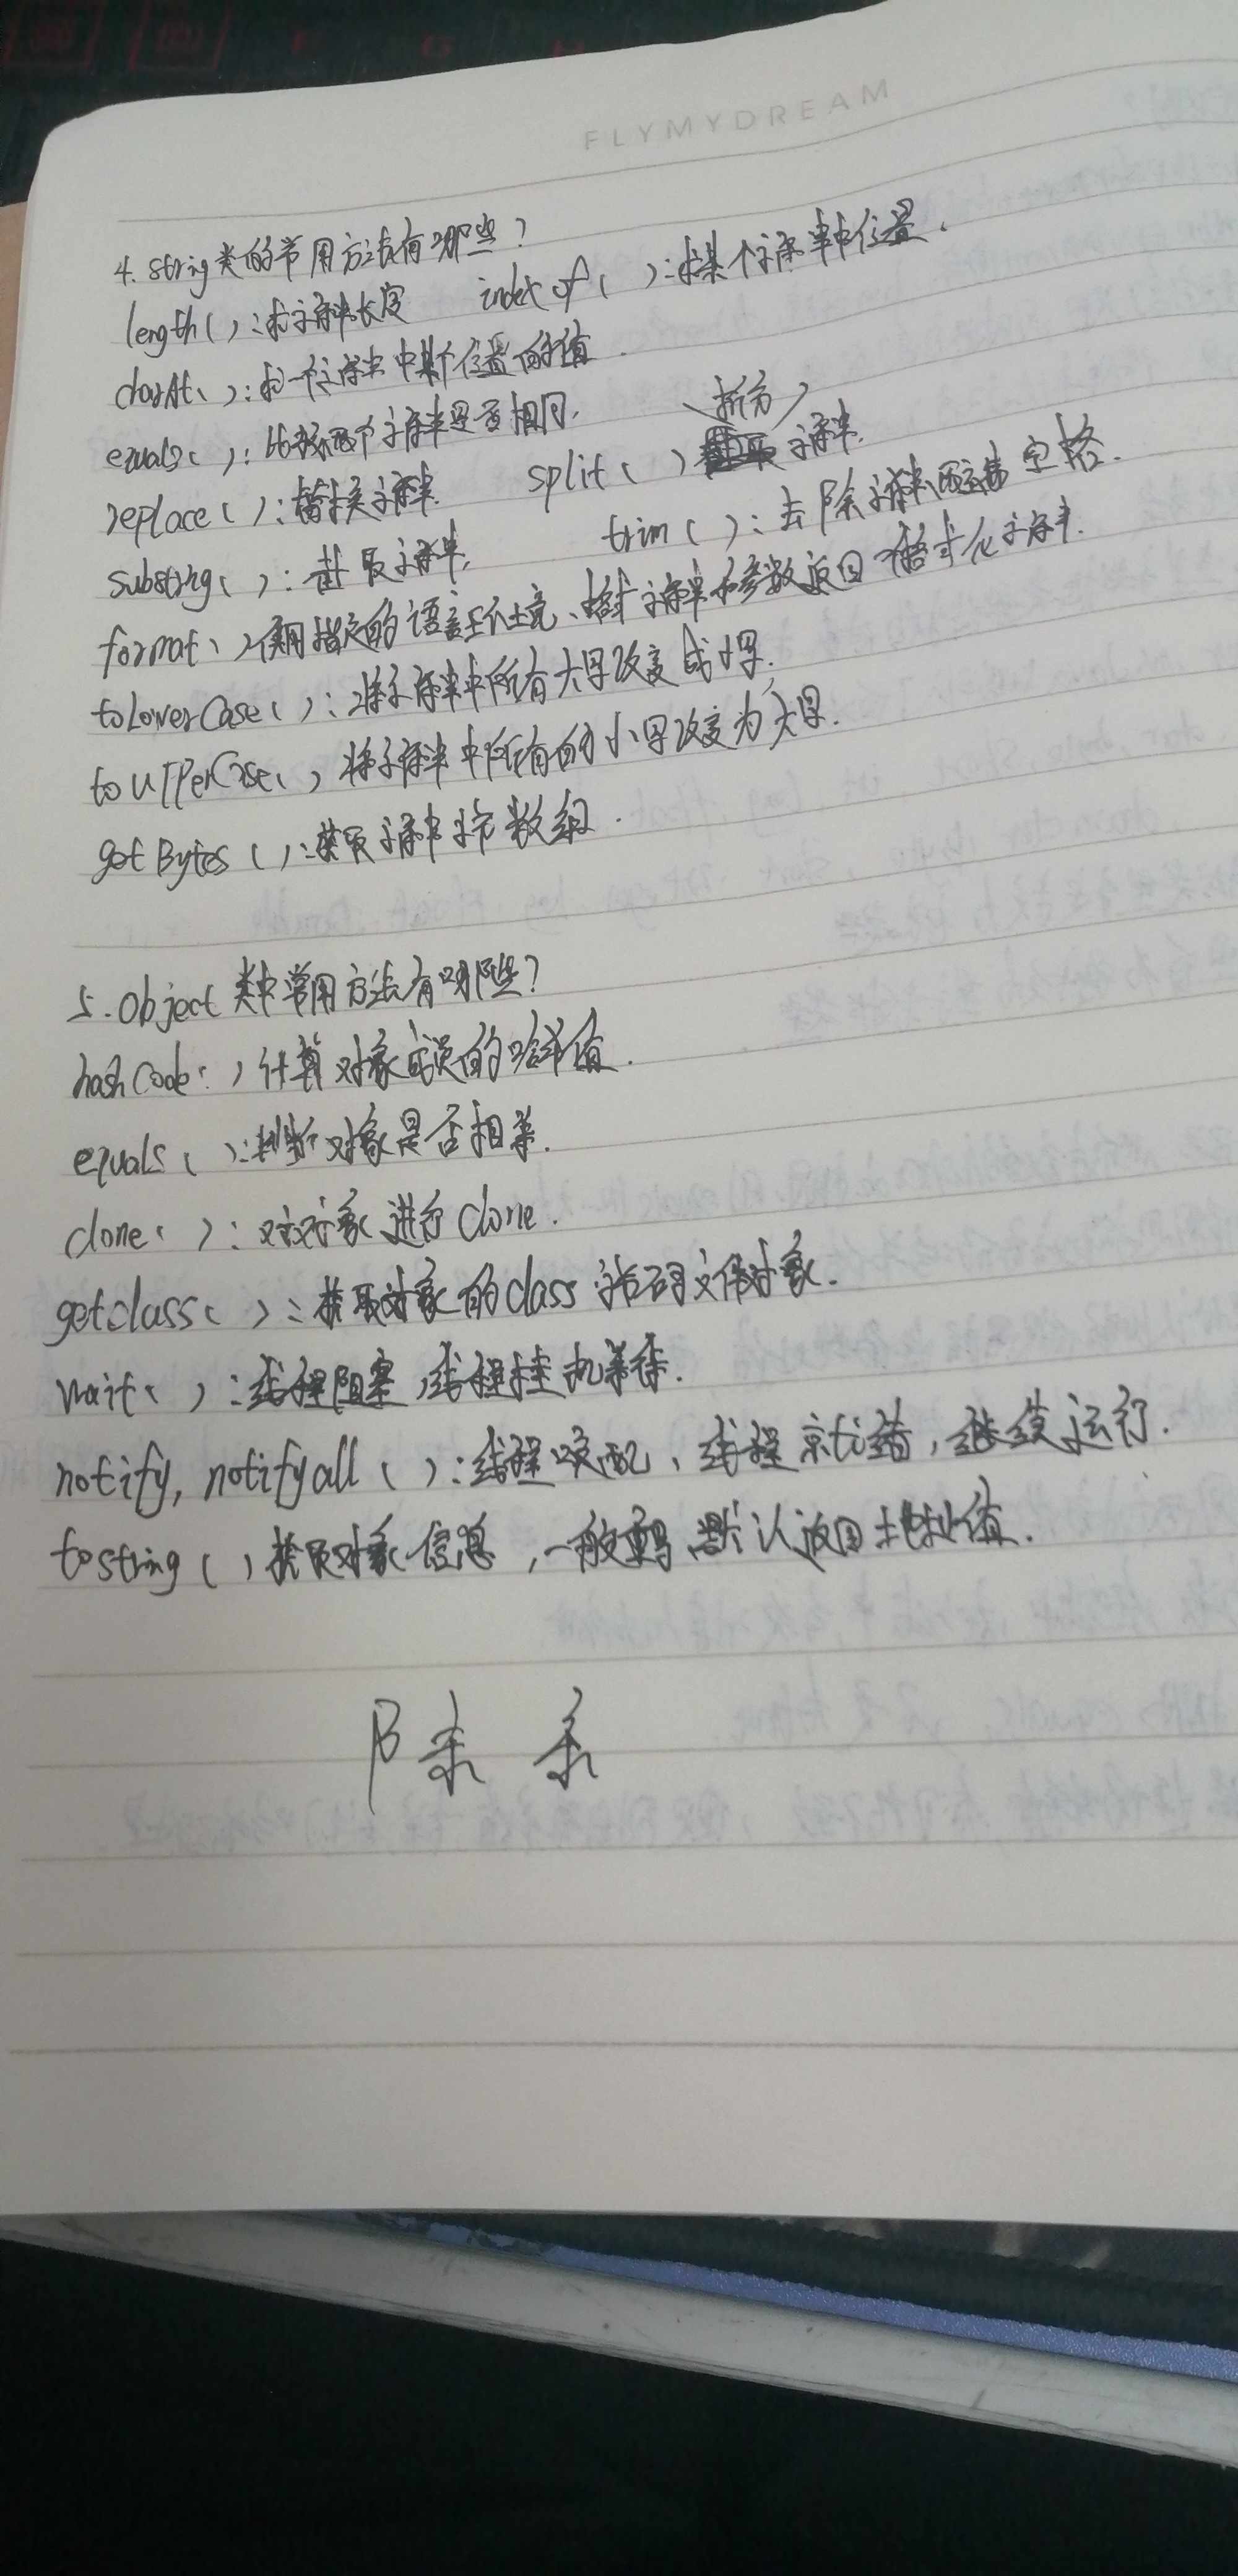 FLYMYDREAM
4. String类的常用方法有哪些?
length():求字符串长度 indexof():求某个字符串中位置.
charAt():求一个字符串中某个位置的值.
equals():比较两个字符串是否相同.
replace():替换字符串. split()拆分字符串.
substring():截取字符串. trim():去除字符串两端空格.
format()使用指定的语言环境、格式字符串和参数返回格式化字符串.
toLowerCase():将字符串中所有大写改变成小写.
toUpperCase()将字符串中所有的小写改变为大写.
getBytes():获取字符串字节数组.
5. Object类中常用方法有哪些?
hashCode()计算对象成员的哈希值.
equals():判断对象是否相等.
clone():对对象进行clone.
getclass():获取对象的class字节码文件对象.
wait():线程阻塞,线程挂机等待.
notify, notifyall():线程唤醒、线程就绪,继续运行.
tostring()获取对象信息,一般重写、默认返回地址值.